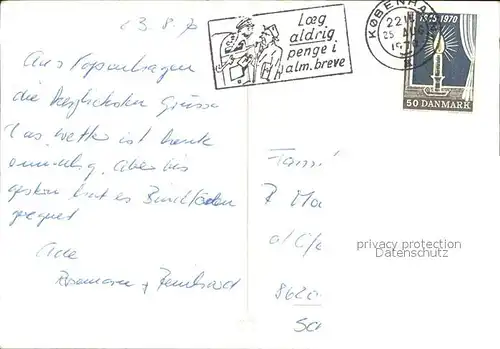 23.8.70
Aus Kopenhagen
die herzlichsten Grüsse
Das Wetter ist heute
Aber bis
gestern hat es Bindfäden
geregnet
Rosemarie + Reinhard
Læg
aldrig
penge i
alm. breve
KØBENHA
22
25 AUG
1945 1970
50 DANMARK
Fami
R Ma
8620
privacy protection
Datenschutz